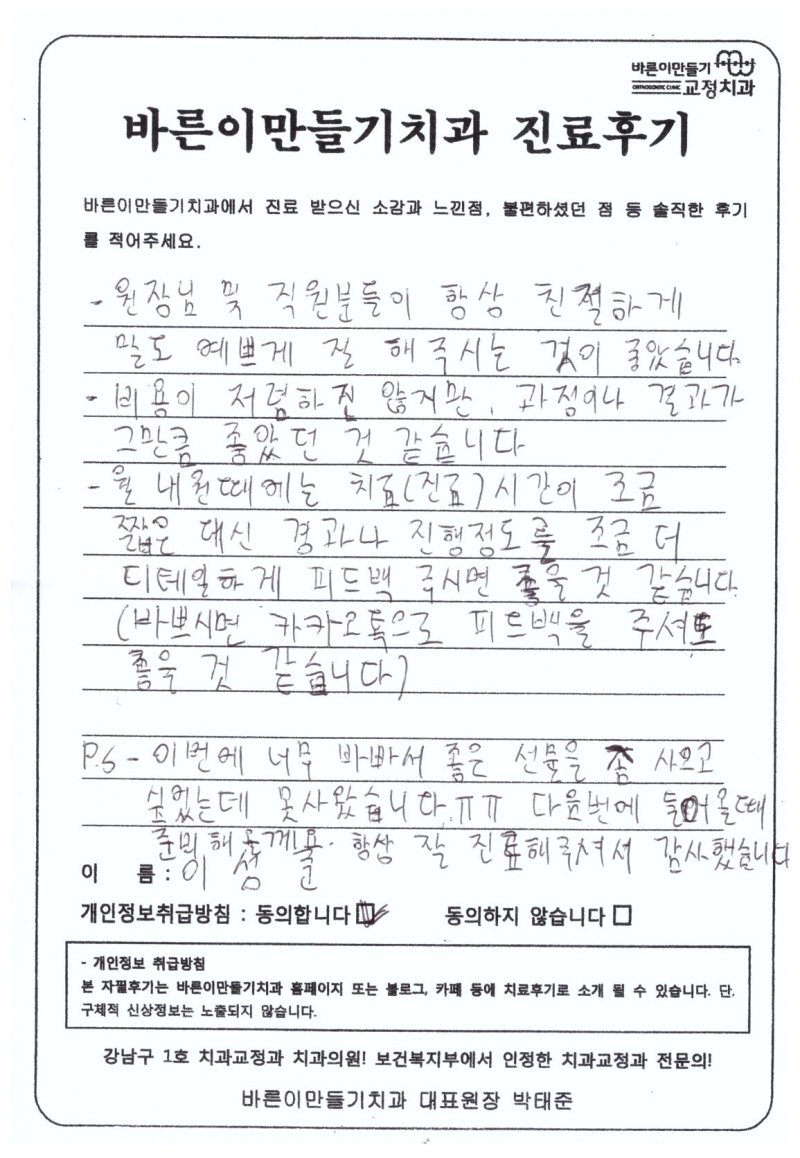 바른이만들기
ORTHODONTIC CLINIC 교정치과
바른이만들기치과 진료후기
바른이만들기치과에서 진료 받으신 소감과 느낀점, 불편하셨던 점 등 솔직한 후기
를 적어주세요.
- 원장님 및 직원분들이 항상 친절하게
말도 예쁘게 잘 해주시는 것이 좋았습니다.
- 비용이 저렴하진 않지만, 과정이나 결과가
그만큼 좋았던 것 같습니다
- 월 내원때에는 치료(진료)시간이 조금
짧은 대신 경과나 진행정도를 조금 더
디테일하게 피드백 주시면 좋을 것 같습니다.
(바쁘시면 카카오톡으로 피드백을 주셔도
좋을 것 같습니다)
P.S - 이번에 너무 바빠서 좋은 선물을 좀 사오고
싶었는데 못사왔습니다.ㅠㅠ 다음번에 들어올때
준비해 올께용. 항상 잘 진료해주셔서 감사했습니다
이 름 : 이 성 준
개인정보취급방침 : 동의합니다 ☑ 동의하지 않습니다 □
- 개인정보 취급방침
본 자필후기는 바른이만들기치과 홈페이지 또는 블로그, 카페 등에 치료후기로 소개 될 수 있습니다. 단,
구체적 신상정보는 노출되지 않습니다.
강남구 1호 치과교정과 치과의원! 보건복지부에서 인정한 치과교정과 전문의!
바른이만들기치과 대표원장 박태준